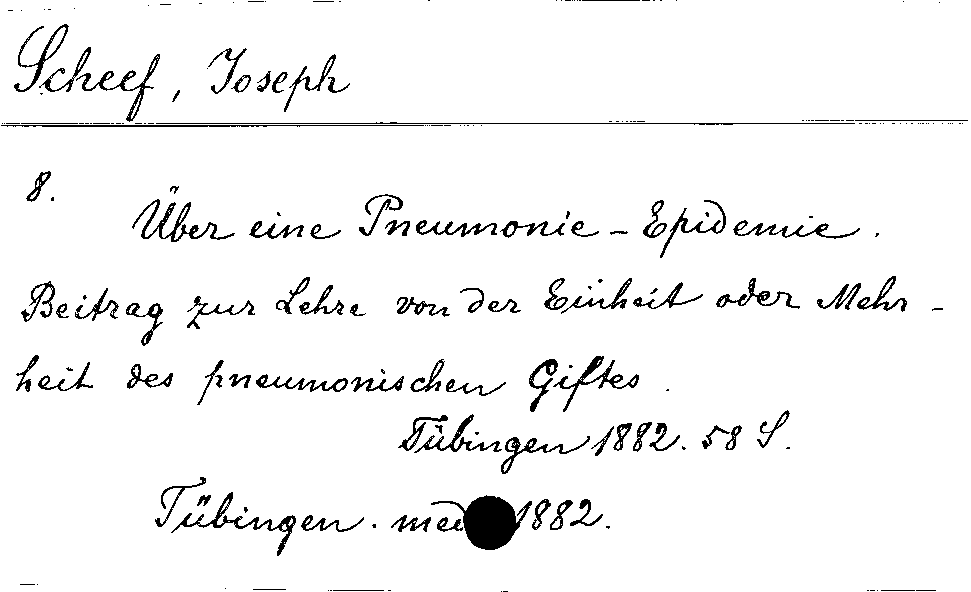 Scheef, Joseph
8.
Über eine Pneumonie-Epidemie.
Beitrag zur Lehre von der Einheit oder Mehr-
heit des pneumonischen Giftes.
Tübingen 1882. 58 S.
Tübingen. med 1882.